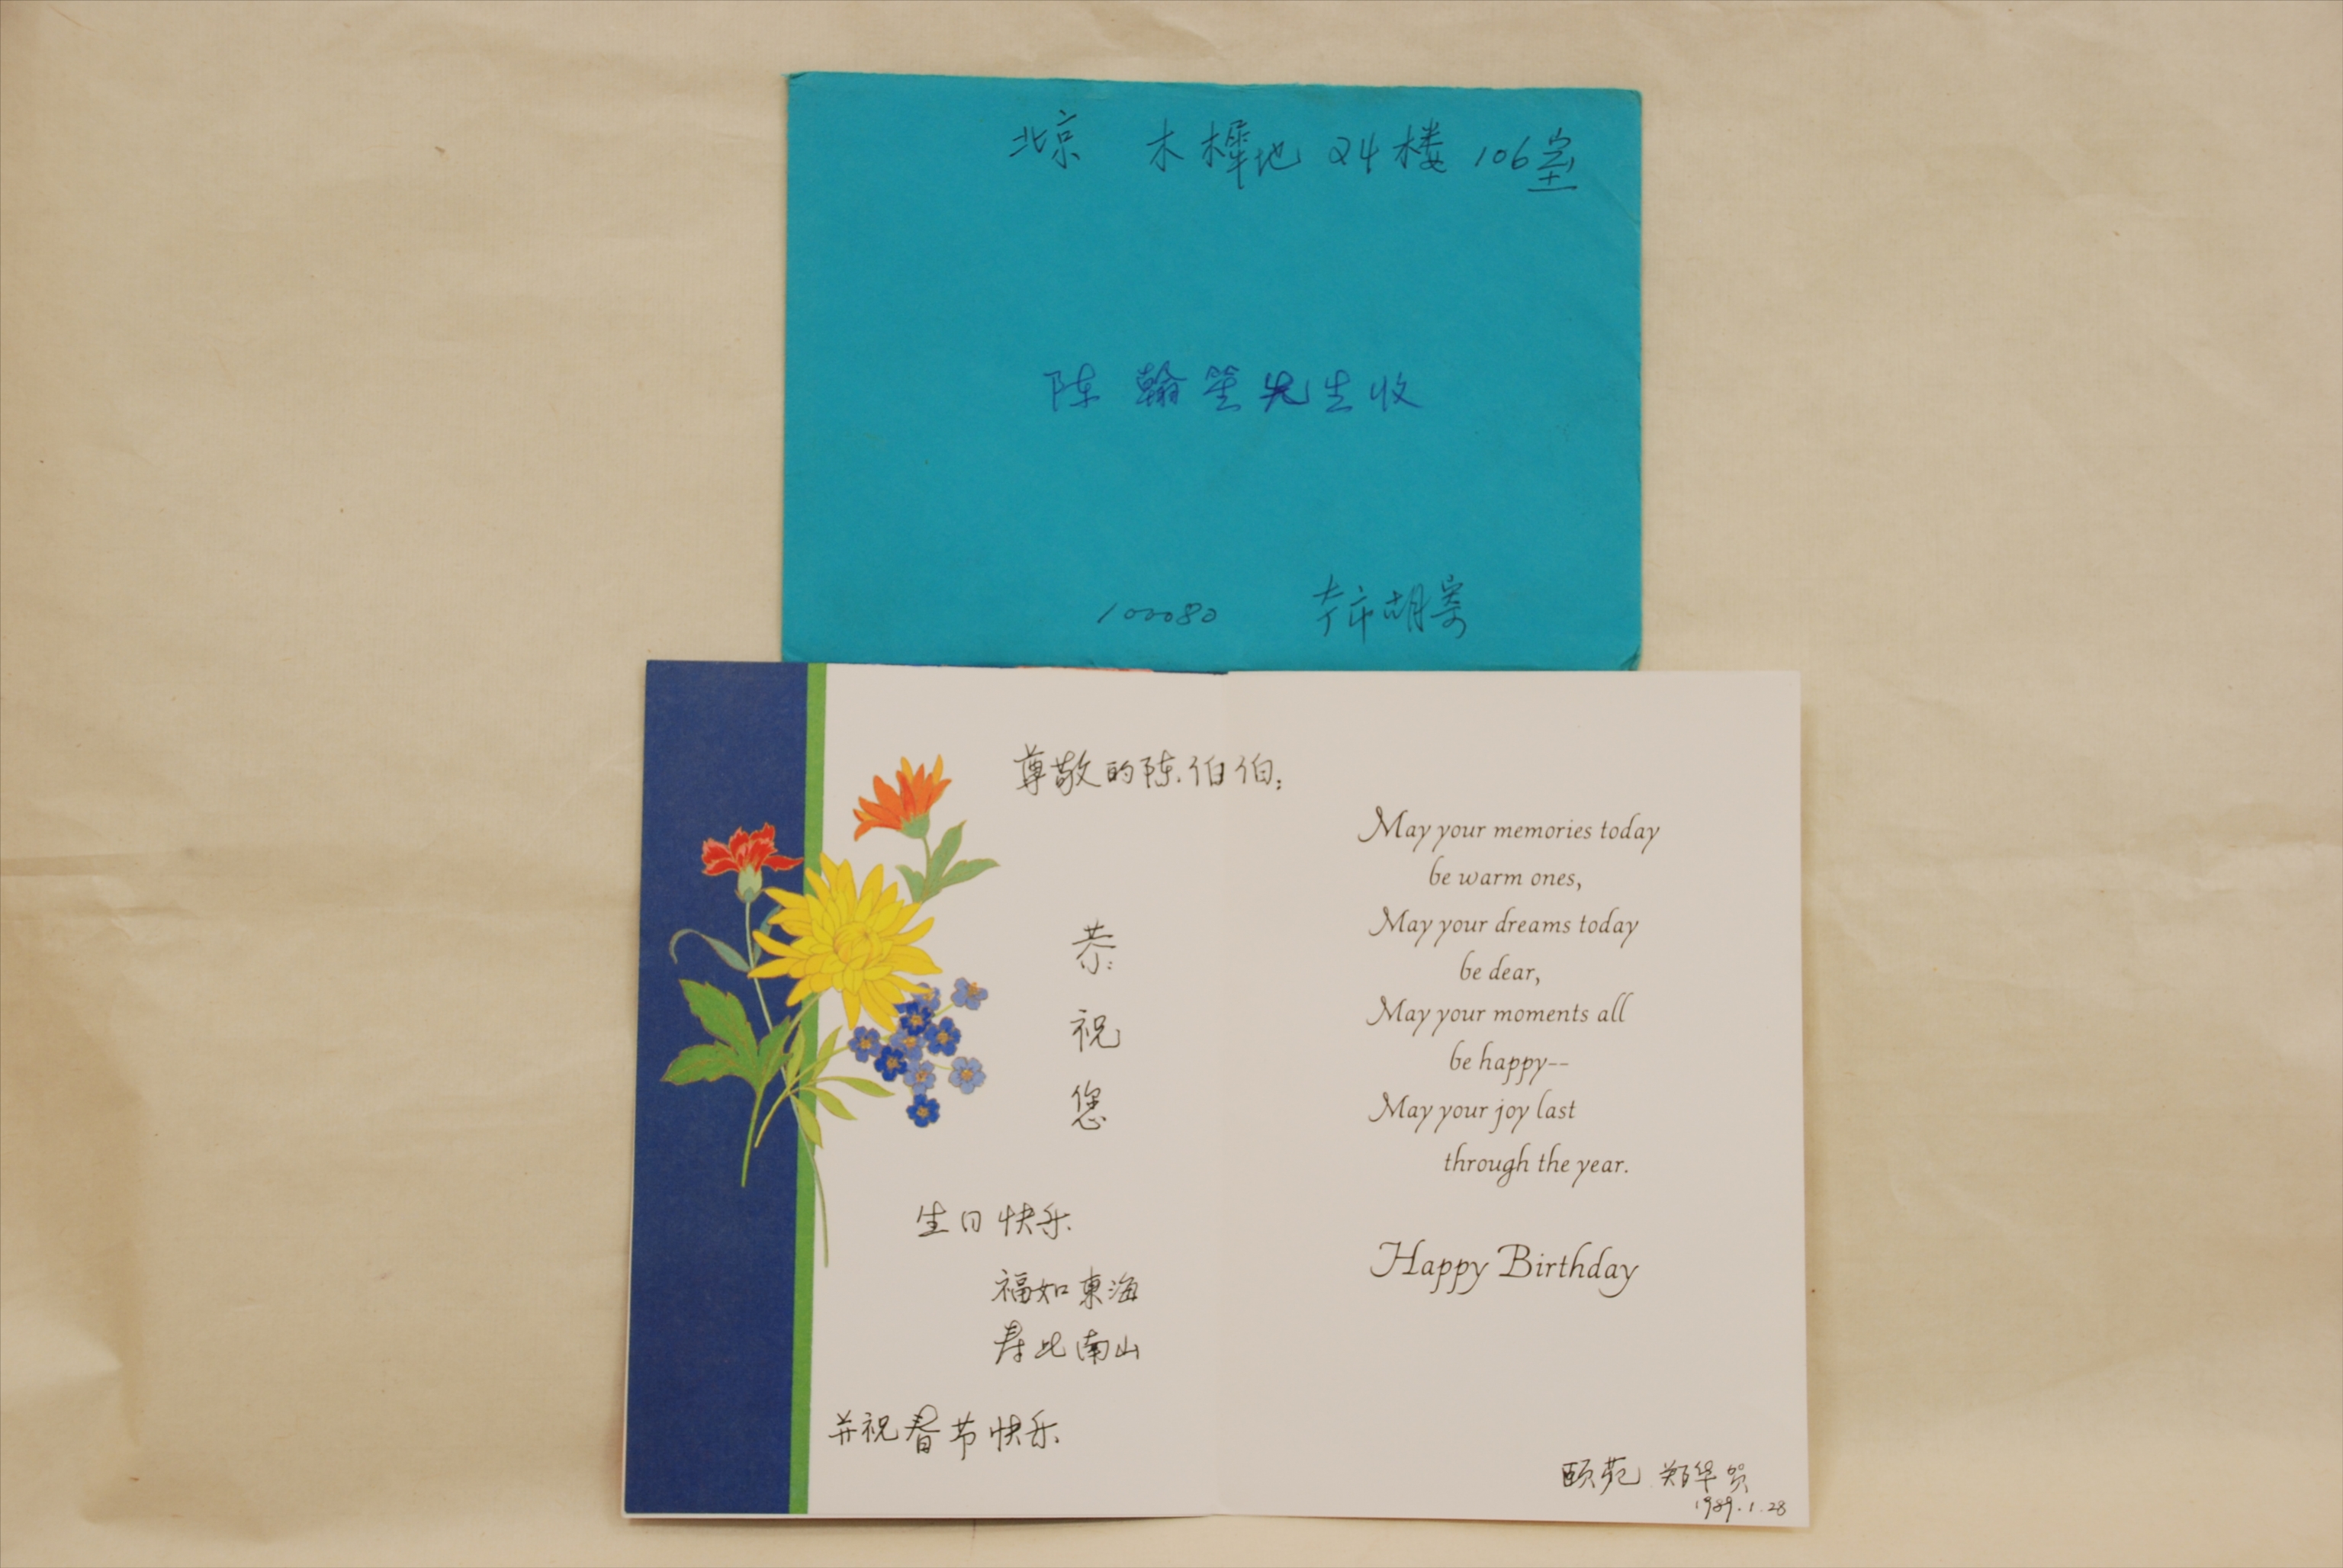 北京 木樨地 24楼 106室
陈翰笙先生收
100080 本市胡寄
尊敬的陈伯伯:
恭
祝
您
生日快乐
福如東海
寿比南山
并祝春节快乐
May your memories today
be warm ones,
May your dreams today
be dear,
May your moments all
be happy--
May your joy last
through the year.
Happy Birthday
颐苑 郑华 贺
1989.1.28